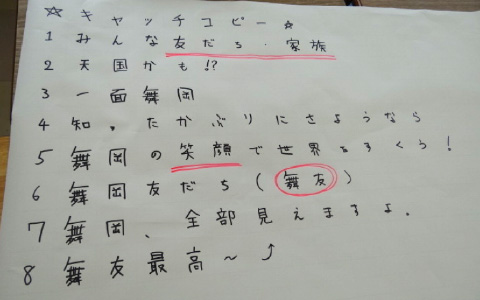 ☆キャッチコピー☆
1 みんな友だち・家族
2 天国かも!?
3 一面舞岡
4 知。たかぶりにさようなら
5 舞岡の笑顔で世界をすくう!
6 舞岡友だち(舞友)
7 舞岡、全部見えますよ。
8 舞友最高～⤴